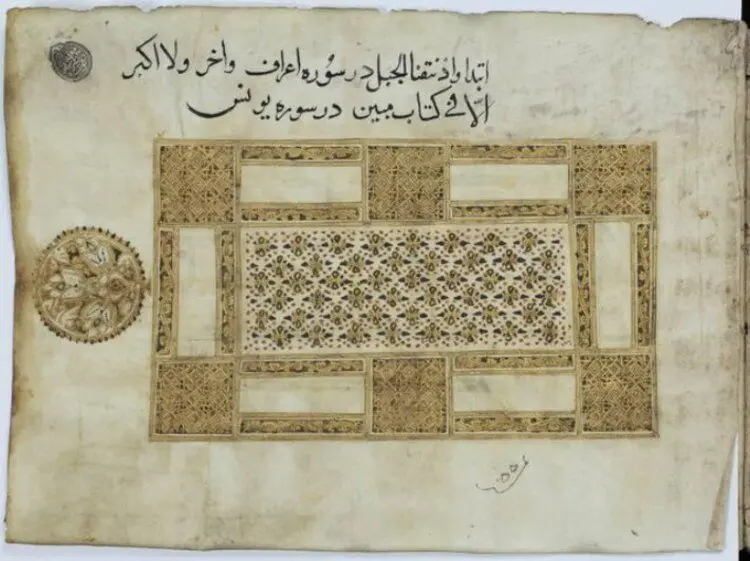 ابتدا واذ نتقنا الجبل در سُوره اعراف واخر ولا اكبر
الّا فی كتاب مبين در سوره يونس